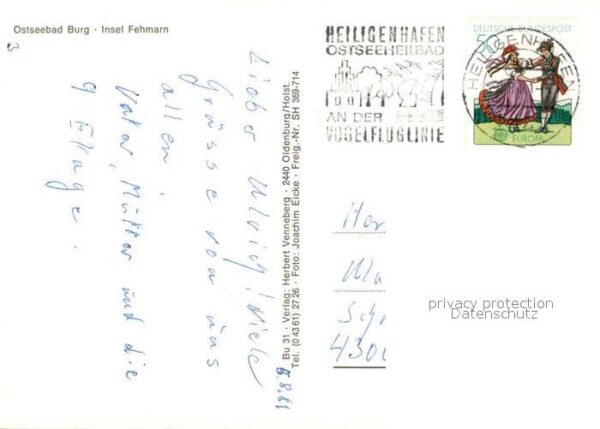 Ostseebad Burg · Insel Fehmarn
3
Lieber Ulrich! Viele
Grüsse von uns
allen!
Vater, Mutter und die
9
5.8.81
Bu 31 · Verlag: Herbert Venneberg · 2440 Oldenburg/Holst.
Tel. (0 43 61) 27 26 · Foto: Joachim Eicke · Freig.-Nr. SH 369-714
HEILIGENHAFEN
OSTSEEHEILBAD
AN DER
VOGELFLUGLINIE
DEUTSCHE BUNDESPOST
50
HEILIGENHAFEN
EUROPA
Her
Sch
430
privacy protection
Datenschutz